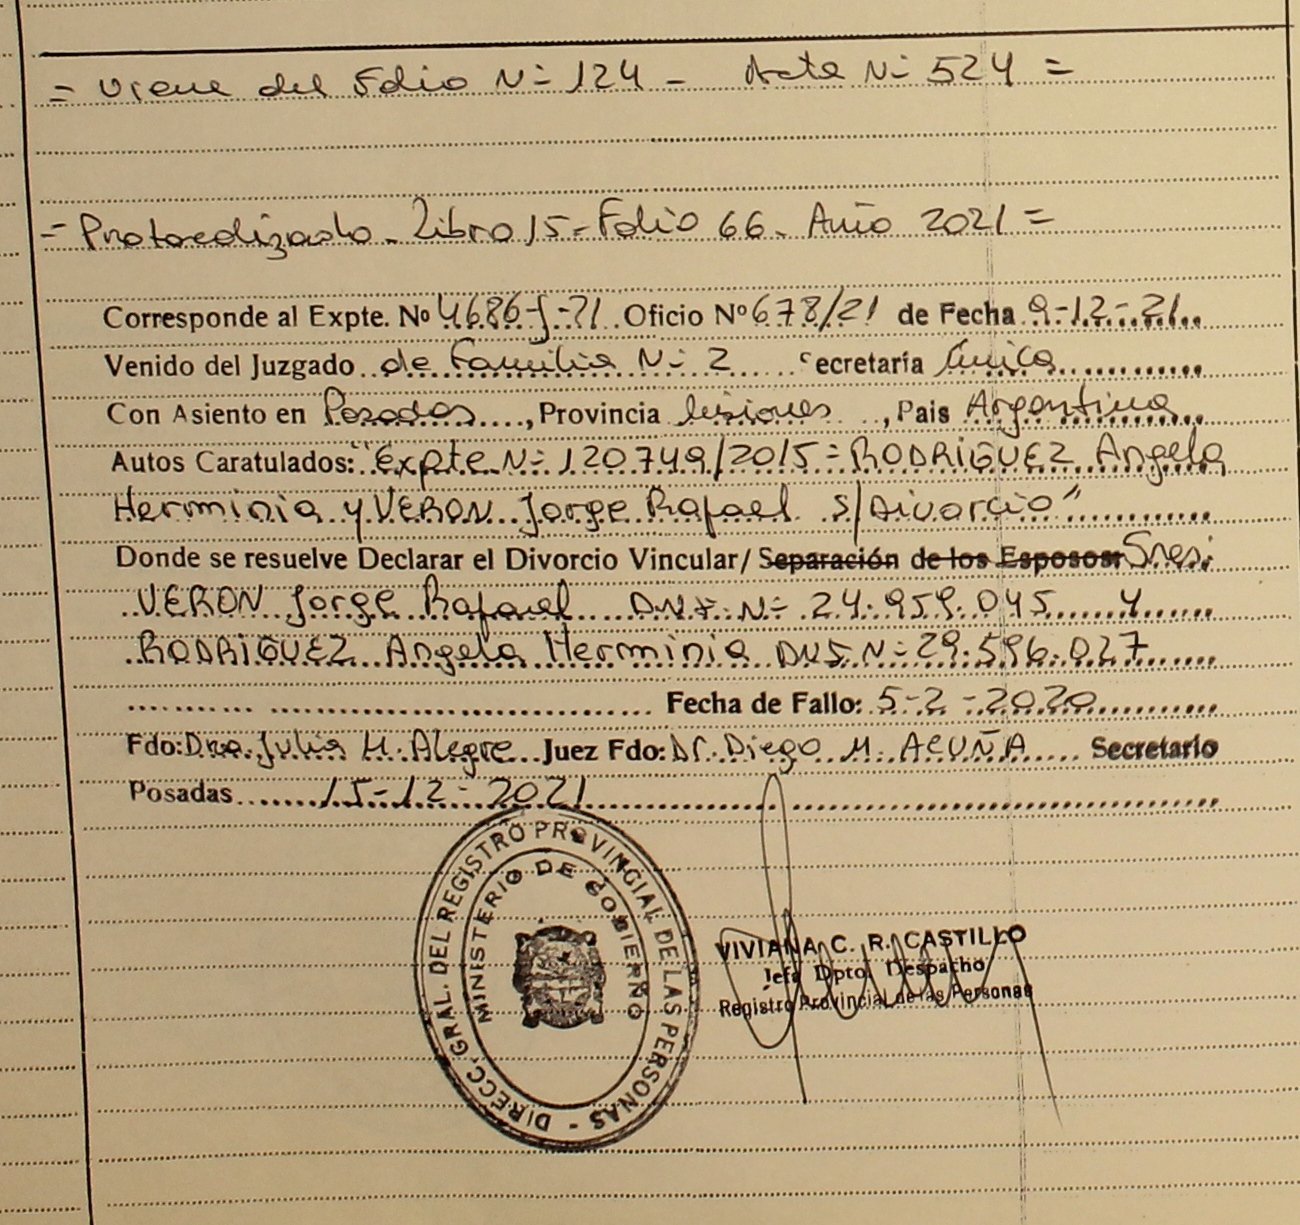 = Viene del Folio Nº 124 - Acta Nº 524 =
= Protocolizado - Libro 15 - Folio 66 - Año 2021 =
Corresponde al Expte. Nº 4686-J-21 Oficio Nº 678/21 de Fecha 9-12-21
Venido del Juzgado de Familia Nº 2 Secretaría Única
Con Asiento en Posadas, Provincia Misiones, Pais Argentina
Autos Caratulados: "Expte Nº 120749/2015 - RODRIGUEZ Angela
Herminia y VERON Jorge Rafael s/Divorcio"
Donde se resuelve Declarar el Divorcio Vincular/ Separación de los Esposos Sres:
VERON Jorge Rafael D.N.I. Nº 24.959.045 y
RODRIGUEZ Angela Herminia DNI Nº 29.596.027
Fecha de Fallo: 5-2-2020
Fdo: Dra. Julia H. Alegre Juez Fdo: Dr. Diego M. ACUÑA Secretario
Posadas 15-12-2021
DIRECC. GRAL. DEL REGISTRO PROVINCIAL DE LAS PERSONAS -
MINISTERIO DE GOBIERNO
VIVIANA C. R. CASTILLO
Jefa Dpto. Despacho
Registro Provincial de las Personas